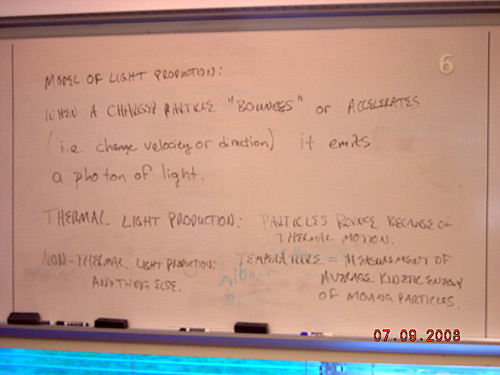 6
MODEL OF LIGHT PRODUCTION:
WHEN A CHARGED PARTICLE "BOUNCES" or ACCELERATES
(i.e. change velocity or direction) it emits
a photon of light.
THERMAL LIGHT PRODUCTION: PARTICLES BOUNCE BECAUSE OF
THERMAL MOTION.
NON-THERMAL LIGHT PRODUCTION: TEMPERATURE = MEASUREMENT OF
ANYTHING ELSE. AVERAGE KINETIC ENERGY
OF MOVING PARTICLES.
07.09.2008